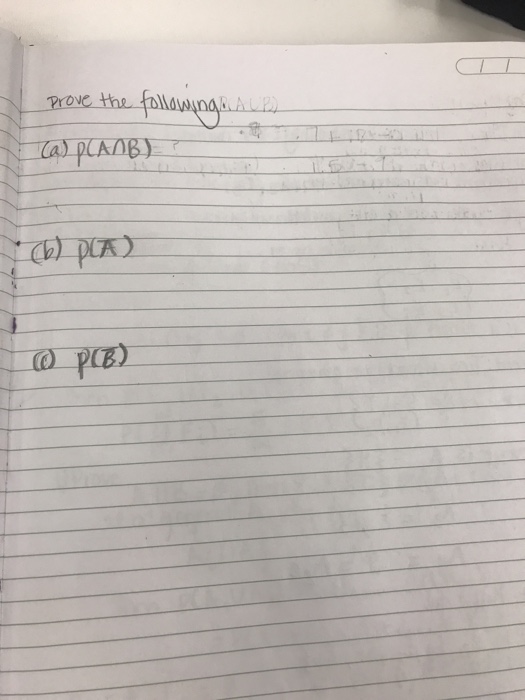 Prove the following:
(a) P(A∩B) = ?
(b) P(A̅)
(c) P(B)